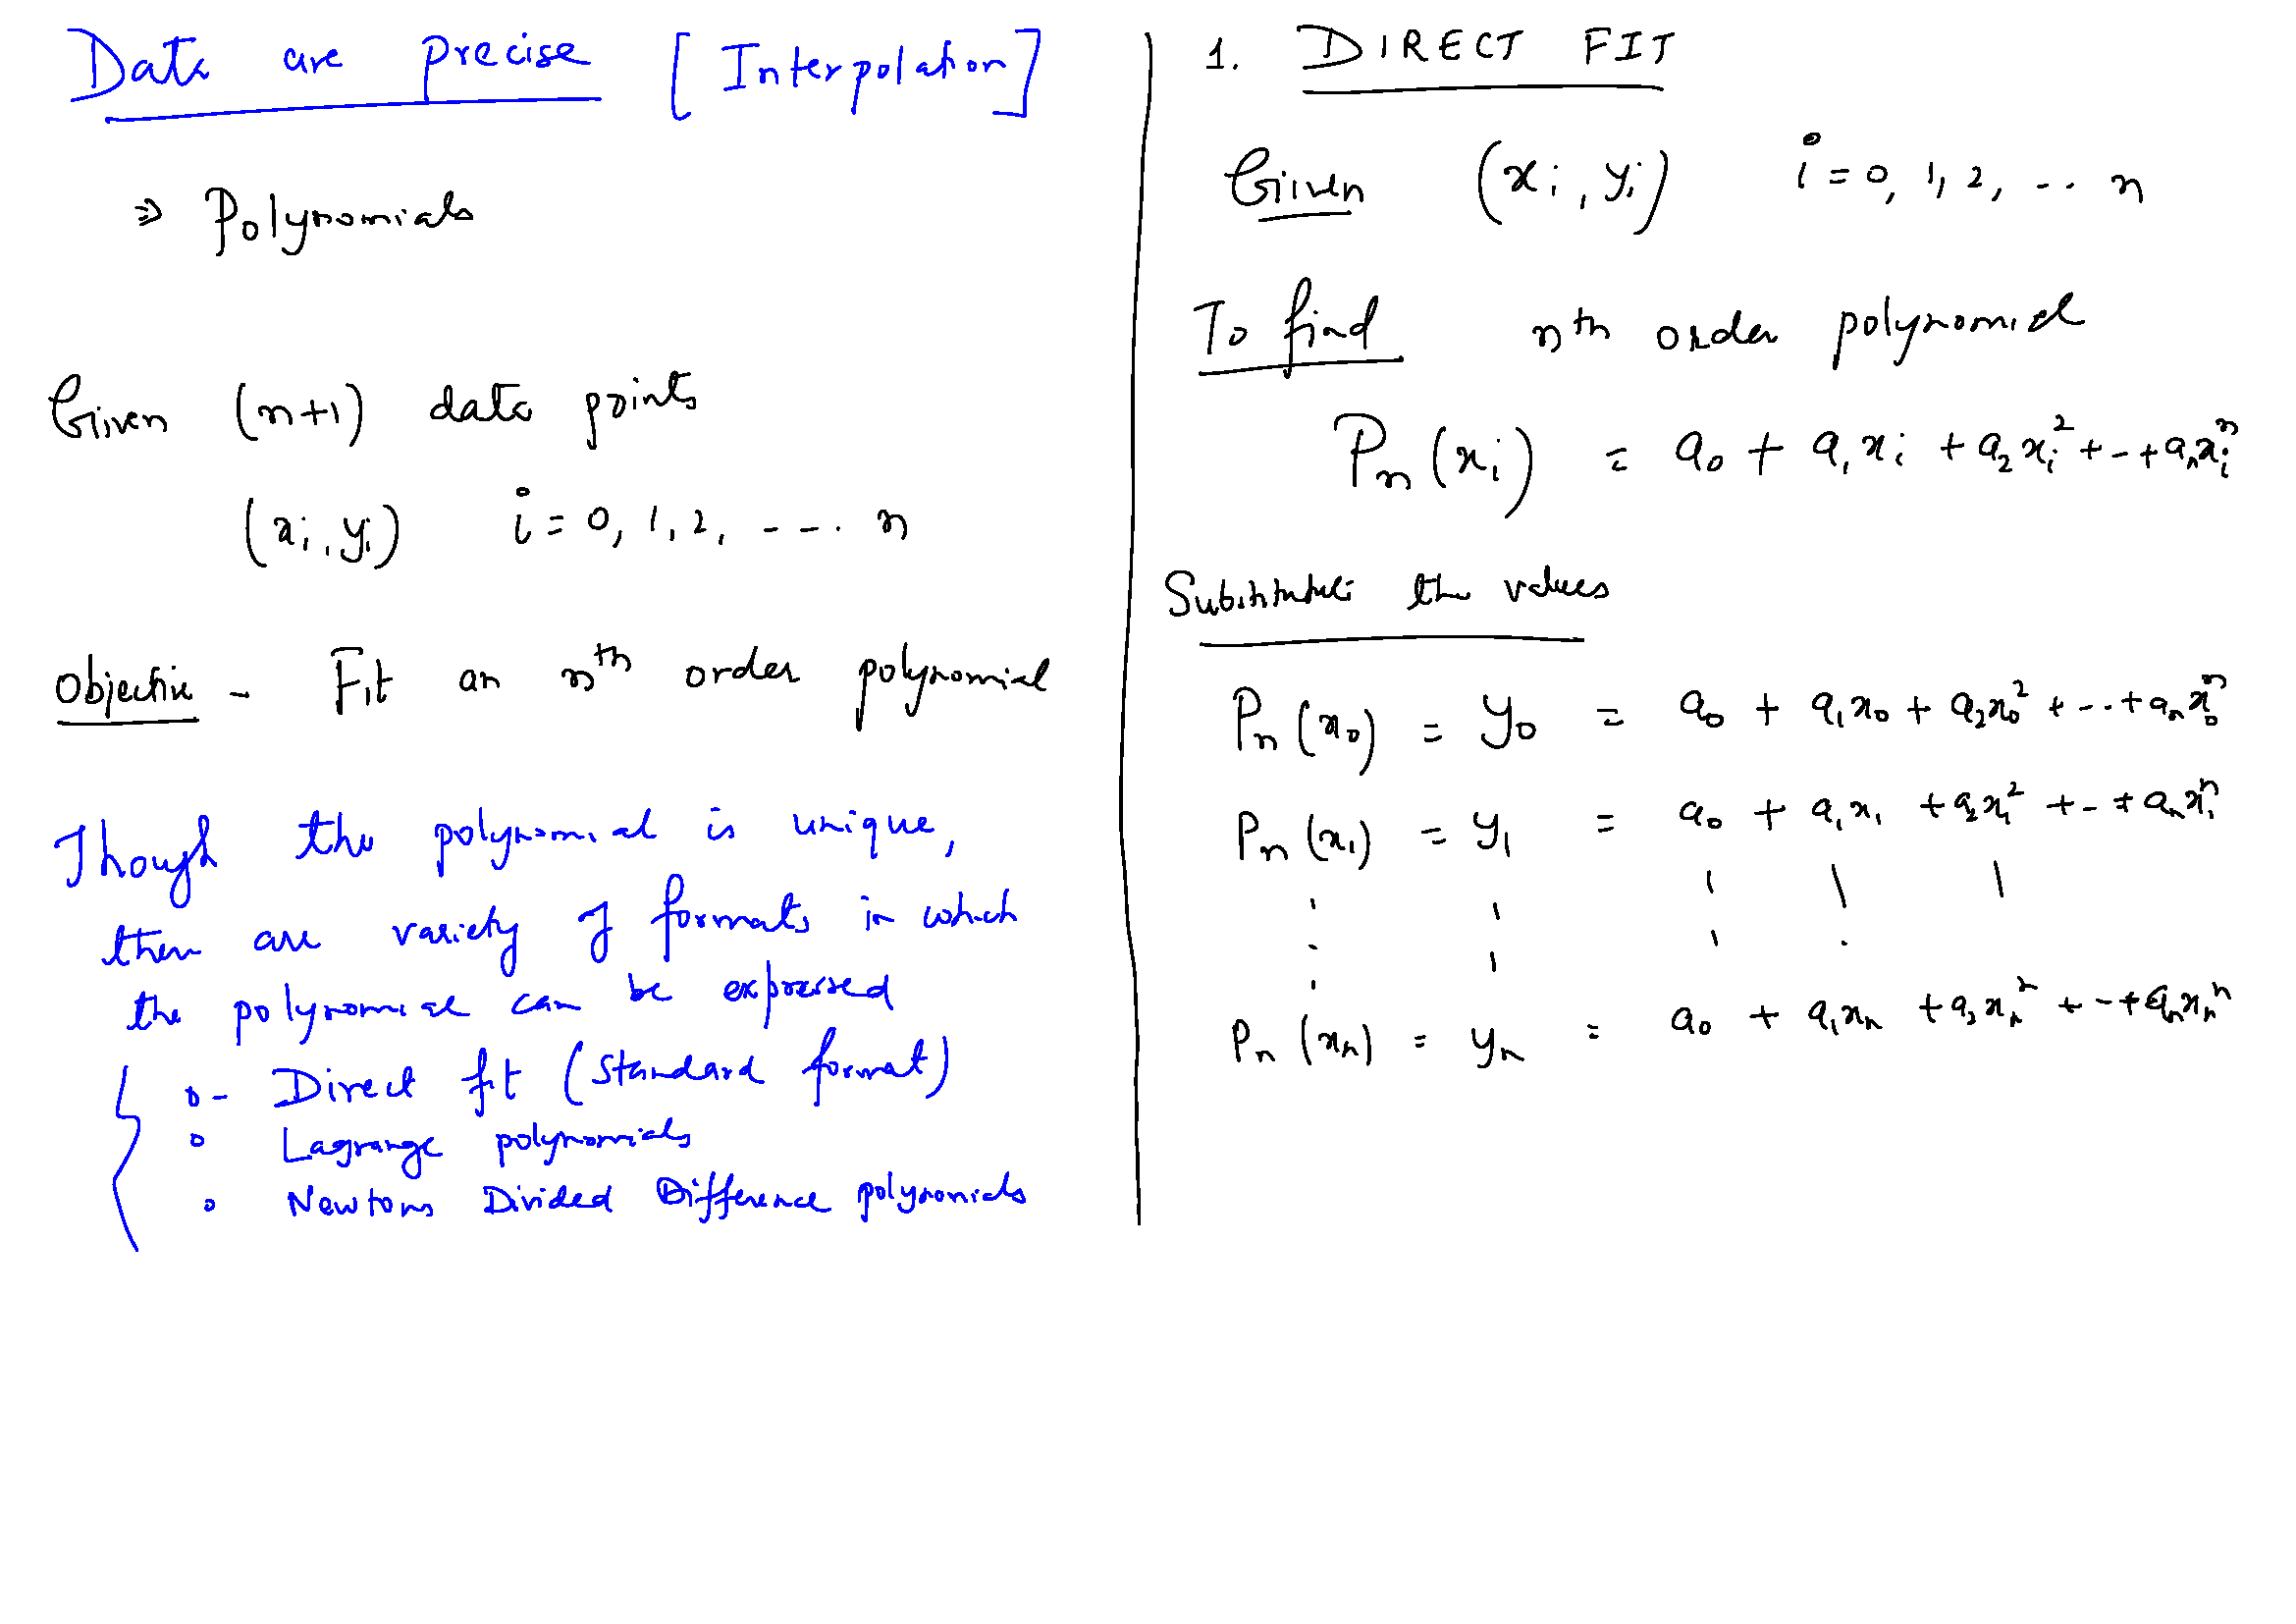 Data are precise [Interpolation]
⇒ Polynomials
Given (n+1) data points
(xᵢ, yᵢ) i = 0, 1, 2, ---. n
Objective - Fit an nᵗʰ order polynomial
Though the polynomial is unique,
there are variety of formats in which
the polynomial can be expressed
o- Direct fit (Standard format)
o Lagrange polynomials
o Newtons Divided Difference polynomials
1. DIRECT FIT
Given (xᵢ, yᵢ) i = 0, 1, 2, -.. n
To find nᵗʰ order polynomial
Pₙ(xᵢ) = a₀ + a₁xᵢ + a₂xᵢ² + -- + aₙxᵢⁿ
Substitute the values
Pₙ(x₀) = y₀ = a₀ + a₁x₀ + a₂x₀² + -.. + aₙx₀ⁿ
Pₙ(x₁) = y₁ = a₀ + a₁x₁ + a₂x₁² + -- + aₙx₁ⁿ
Pₙ(xₙ) = yₙ = a₀ + a₁xₙ + a₂xₙ² + -- + aₙxₙⁿ